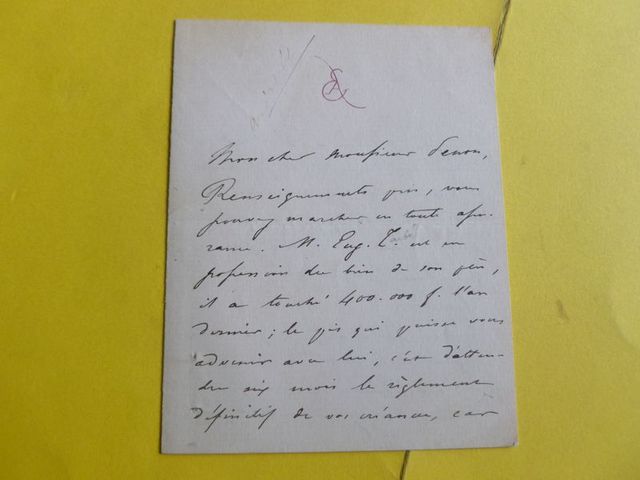 Mon cher Monsieur
Renseignements pris, vous
pouvez marcher en toute assu-
rance. M. Eug. T. est en
possession du bien de son père,
il a touché 400.000 f. l'an
dernier ; le pis qui puisse vous
advenir avec lui, c'est d'atten-
dre six mois le règlement
définitif de vos créances, car